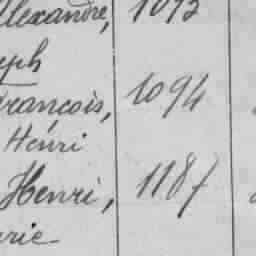 Alexandre, 1093
eph
François, 1094
Henri
Henri, 1187
rie